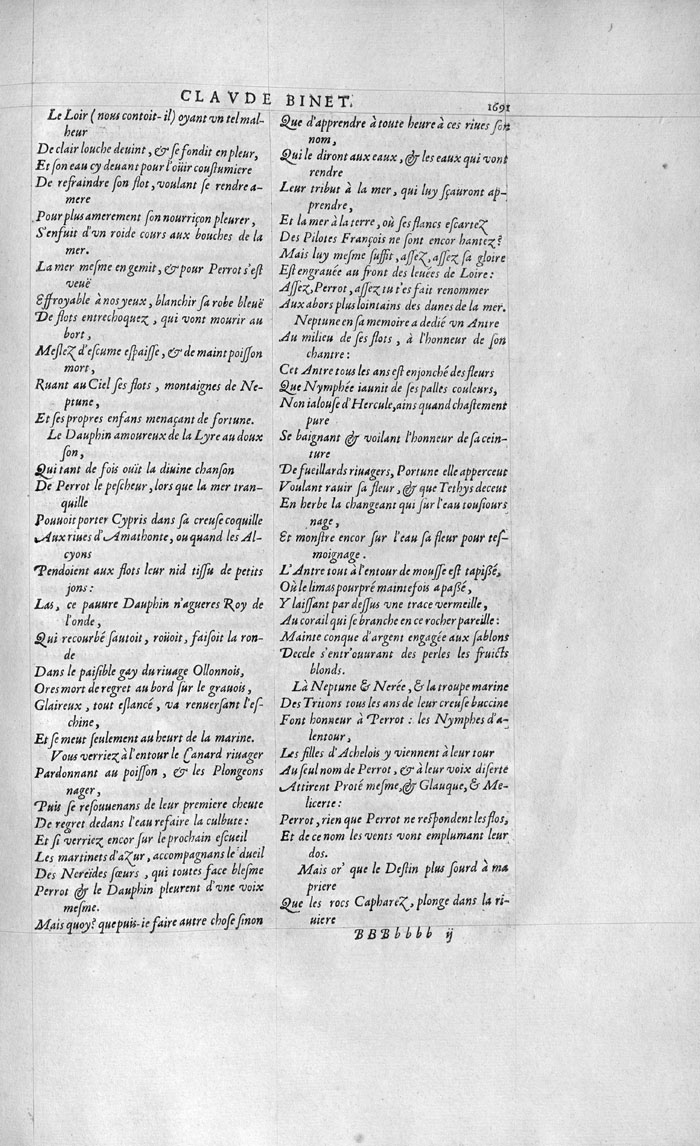 CLAVDE BINET.
1691
Le Loir (nous contoit-il) oyant vn tel mal-
heur
De clair louche deuint, & se fondit en pleur,
Et son eau cy deuant pour l'oüir coustumiere
De refraindre son flot, voulant se rendre a-
mere
Pour plus amerement son nourriçon pleurer,
S'enfuit d'vn roide cours aux bouches de la
mer.
La mer mesme en gemit, & pour Perrot s'est
veuë
Effroyable à nos yeux, blanchir sa robe bleuë
De flots entrechoquez, qui vont mourir au
bort,
Meslez d'escume espaisse, & de maint poisson
mort,
Ruant au Ciel ses flots, montaignes de Ne-
ptune,
Et ses propres enfans menaçant de fortune.
Le Dauphin amoureux de la Lyre au doux
son,
Qui tant de fois ouït la diuine chanson
De Perrot le pescheur, lors que la mer tran-
quille
Pouuoit porter Cypris dans sa creuse coquille
Aux riues d'Amathonte, ou quand les Al-
cyons
Pendoient aux flots leur nid tissu de petits
jons:
Las, ce pauure Dauphin n'agueres Roy de
l'onde,
Qui recourbé sautoit, roüoit, faisoit la ron-
de
Dans le paisible gay du riuage Ollonnois,
Ores mort de regret au bord sur le grauois,
Glaireux, tout eslancé, va renuersant l'es-
chine,
Et se meut seulement au heurt de la marine.
Vous verriez à l'entour le Canard riuager
Pardonnant au poisson, & les Plongeons
nager,
Puis se resouuenans de leur premiere cheute
De regret dedans l'eau refaire la culbute:
Et si verriez encor sur le prochain escueil
Les martinets d'azur, accompagnans le dueil
Des Nereïdes sœurs, qui toutes face blesme
Perrot & le Dauphin pleurent d'vne voix
mesme.
Mais quoy? que puis-ie faire autre chose sinon
Que d'apprendre à toute heure à ces riues son
nom,
Qui le diront aux eaux, & les eaux qui vont
rendre
Leur tribut à la mer, qui luy sçauront ap-
prendre,
Et la mer à la terre, où ses flancs escartez
Des Pilotes François ne sont encor hantez?
Mais luy mesme suffit, assez, assez sa gloire
Est engrauée au front des leuées de Loire:
Assez, Perrot, assez tu t'es fait renommer
Aux abors plus lointains des dunes de la mer.
Neptune en sa memoire a dedié vn Antre
Au milieu de ses flots, à l'honneur de son
chantre:
Cet Antre tous les ans est enjonché des fleurs
Que Nymphée iaunit de ses palles couleurs,
Non ialouse d'Hercule, ains quand chastement
pure
Se baignant & voilant l'honneur de sa cein-
ture
De fueillards riuagers, Portune elle apperceut
Voulant rauir sa fleur, & que Tethys deceut
En herbe la changeant qui sur l'eau tousiours
nage,
Et monstre encor sur l'eau sa fleur pour tes-
moignage.
L'Antre tout à l'entour de mousse est tapissé,
Où le limas pourpré maintefois a passé,
Y laissant par dessus vne trace vermeille,
Au corail qui se branche en ce rocher pareille:
Mainte conque d'argent engagée aux sablons
Decele s'entr'ouurant des perles les fruicts
blonds.
Là Neptune & Nerée, & la troupe marine
Des Tritons tous les ans de leur creuse buccine
Font honneur à Perrot: les Nymphes d'a-
lentour,
Les filles d'Achelois y viennent à leur tour
Au seul nom de Perrot, & à leur voix diserte
Attirent Proté mesme, & Glauque, & Me-
licerte:
Perrot, rien que Perrot ne respondent les flos,
Et de ce nom les vents vont emplumant leur
dos.
Mais or' que le Destin plus sourd à ma
priere
Que les rocs Capharez, plonge dans la ri-
uiere
BBBbbbb ij